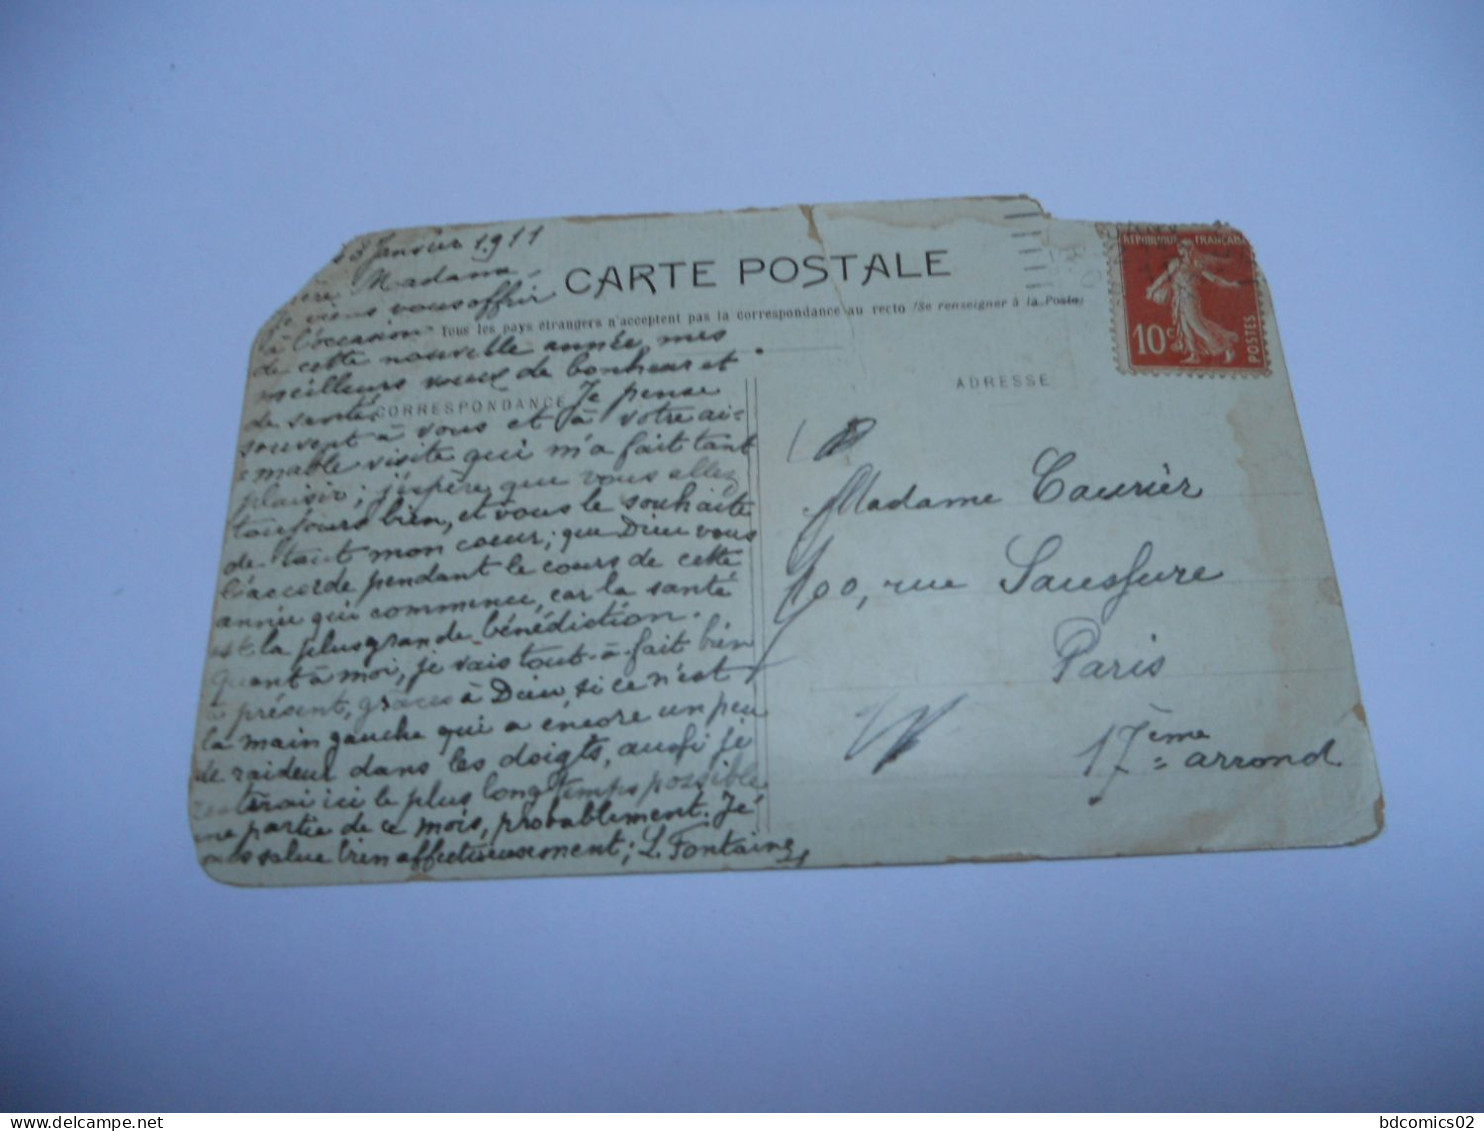 3 Janvier 1911
Madame
Je viens vous offrir
à l'occasion
de cette nouvelle année, mes
meilleurs voeux de bonheur et
de santé. Je pense
souvent à vous et à votre ai-
mable visite qui m'a fait tant
plaisir; j'espère que vous allez
toujours bien, et vous le souhaite
de tout mon coeur; que Dieu vous
l'accorde pendant le cours de cette
année qui commence, car la santé
est la plus grande bénédiction.
quant à moi, je vais tout-à-fait bien
à présent, grâces à Dieu, si ce n'est
la main gauche qui a encore un peu
de raideur dans les doigts, aussi je
resterai ici le plus longtemps possible
une partie de ce mois, probablement. Je
vous salue bien affectueusement; L. Fontaine
CARTE POSTALE
Tous les pays étrangers n'acceptent pas la correspondance au recto (Se renseigner à la Poste)
CORRESPONDANCE
ADRESSE
RÉPUBLIQUE FRANÇAISE
10c
POSTES
Madame Caurièr
100, rue Saussure
Paris
17ème arrond
bdcomics02